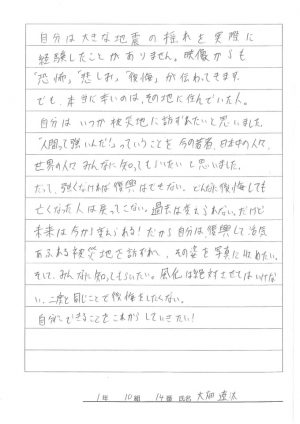 自分は大きな地震の揺れを実際に
経験したことがありません。映像からも
「恐怖」「悲しみ」「後悔」が伝わってきます。
でも、本当に辛いのは、その地に住んでいた人。
自分はいつか被災地に訪ずれたいと思いました。
"人間って強いんだ!"っていうことを今の若者、日本中の人々、
世界の人々みんなに知ってもらいたいと思いました。
だって、強くなければ復興はできない。どんなに後悔しても
亡くなった人は戻ってこない。過去は変えられない。だけど
未来は今から変えられる!だから自分は復興して活気
あふれる被災地を訪ずれ、その姿を写真に収めたい。
そして、みんなに知ってもらいたい。風化は絶対させてはいけな
い、二度と同じことで後悔をしたくない。
自分にできることをこれからしていきたい!
1年 10組 14番 氏名 大畑